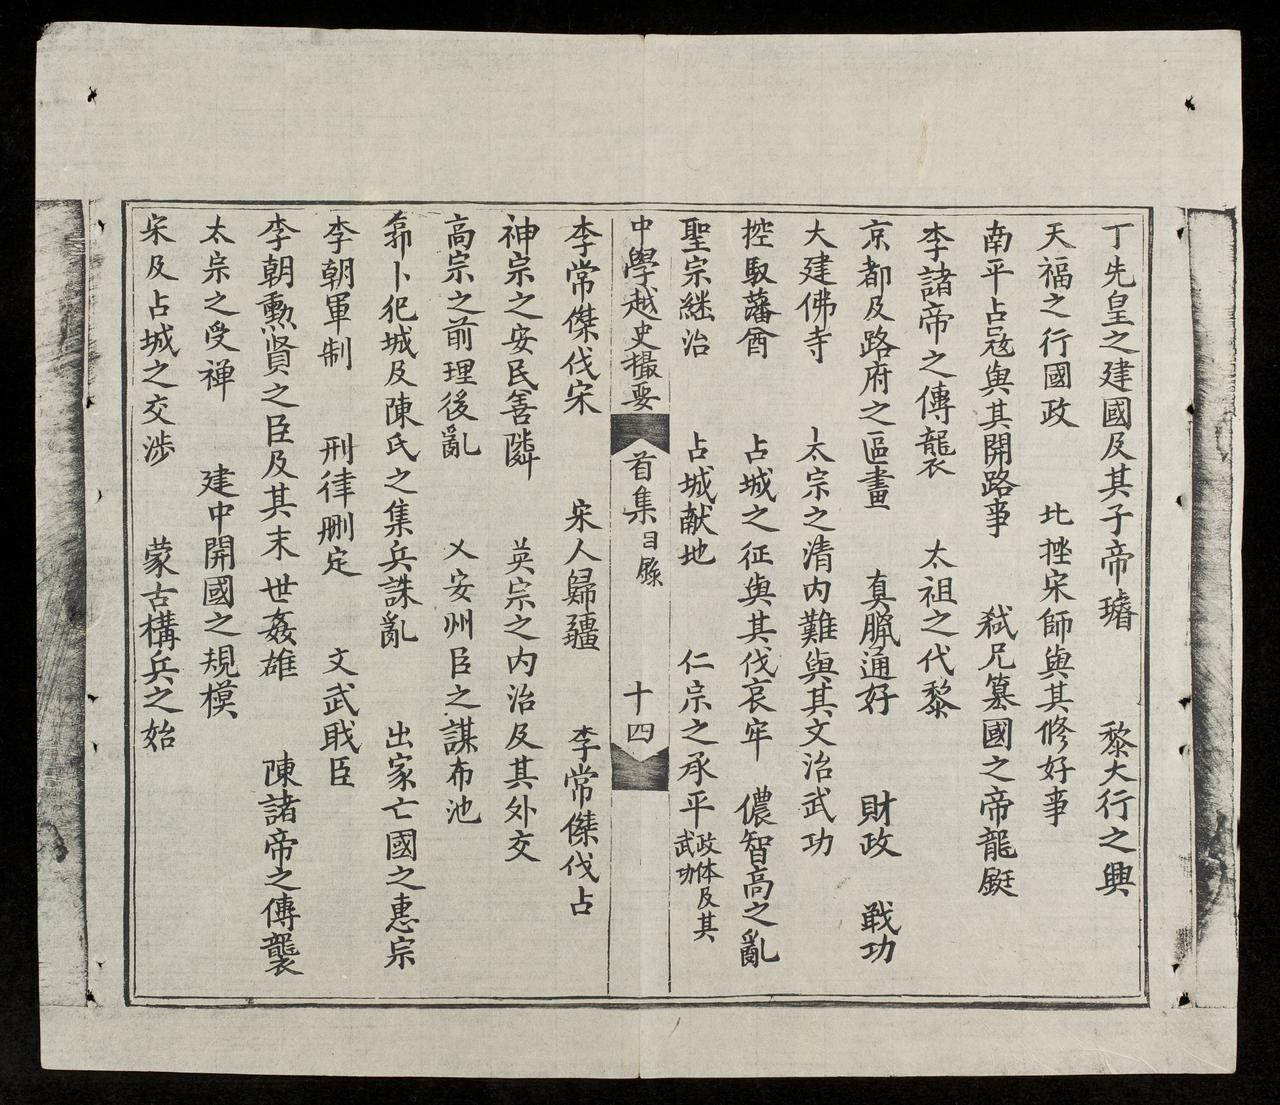 丁先皇之建國及其子帝璿 黎大行之興
天福之行國政 北挫宋師與其修好事
南平占寇與其開路事 弑兄篡國之帝龍鋌
李諸帝之傳襲 太祖之代黎
京都及路府之區畫 真臘通好 財政 戰功
大建佛寺 太宗之清内難與其文治武功
控馭藩酋 占城之征與其伐哀牢 儂智高之亂
聖宗継治 占城献地 仁宗之承平 政体及其武功
中學越史撮要 首集 目錄 十四
李常傑伐宋 宋人歸疆 李常傑伐占
神宗之安民善隣 英宗之内治及其外交
高宗之前理後亂 乂安州臣之謀布池
郭卜犯城及陳氏之集兵誅亂 出家亡國之惠宗
李朝軍制 刑律刪定 文武戝臣
李朝勳賢之臣及其末世姦雄 陳諸帝之傳襲
太宗之受禅 建中開國之規模
宋及占城之交渉 蒙古構兵之始